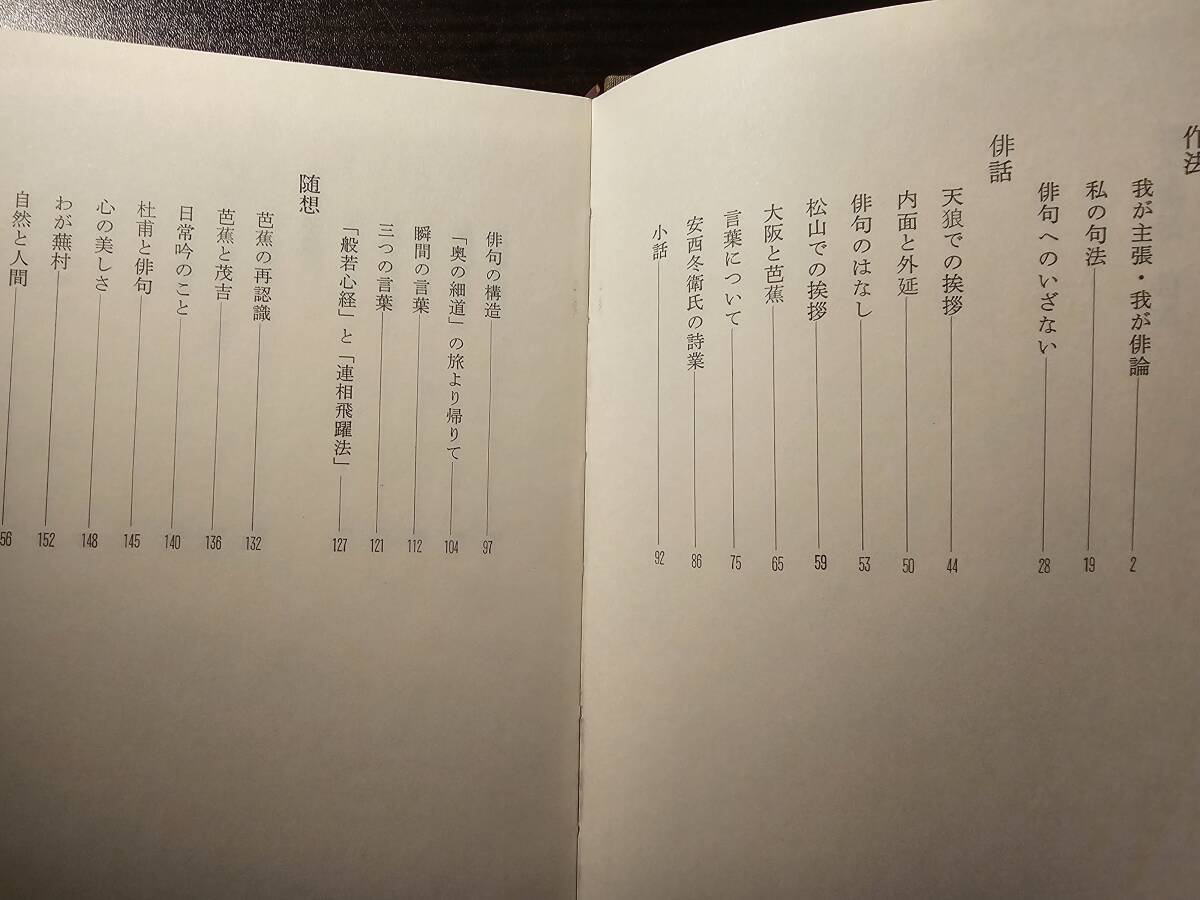 作法
我が主張・我が俳論 2
私の句法 19
俳句へのいざない 28
俳話
天狼での挨拶 44
内面と外延 50
俳句のはなし 53
松山での挨拶 59
大阪と芭蕉 65
言葉について 75
安西冬衛氏の詩業 86
小話 92
俳句の構造 97
「奥の細道」の旅より帰りて 104
瞬間の言葉 112
三つの言葉 121
「般若心経」と「連相飛躍法」 127
随想
芭蕉の再認識 132
芭蕉と茂吉 136
日常吟のこと 140
杜甫と俳句 145
心の美しさ 148
わが蕪村 152
自然と人間 56